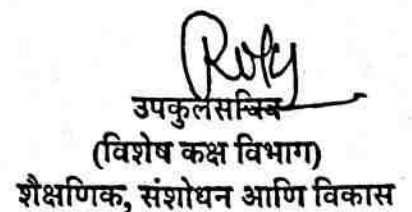 उपकुलसचिव
(विशेष कक्ष विभाग)
शैक्षणिक, संशोधन आणि विकास